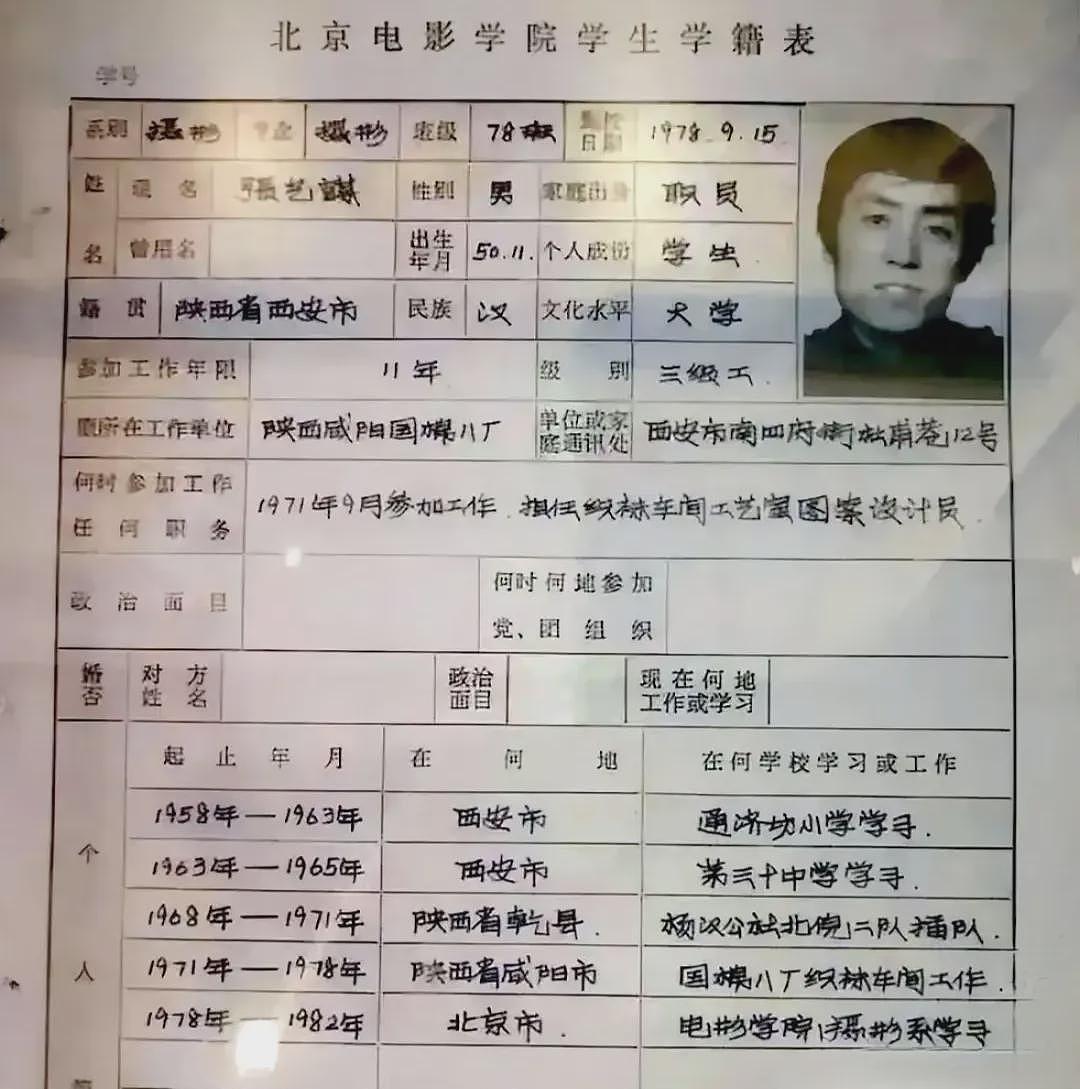 北京电影学院学生学籍表
学号
系别 摄影 专业 摄影 班级 78班 日期 1978.9.15
姓名 现名 張艺謀 性别 男 家庭出身 职员
曾用名 出生年月 50.11. 个人成份 学生
籍贯 陕西省西安市 民族 汉 文化水平 大学
参加工作年限 11年 级别 三级工.
原所在工作单位 陕西咸阳国棉八厂 单位或家庭通讯处 西安市南四府街 12号
何时参加工作任何职务 1971年9月参加工作.担任织袜车间工艺室图案设计员.
政治面目 何时何地参加党、团组织
婚否 对方姓名 政治面目 现在何地工作或学习
个人 起止年月 在何地 在何学校学习或工作
1958年—1963年 西安市 通济坊小学学习.
1963年—1965年 西安市 第三十中学学习.
1968年—1971年 陕西省乾县. 杨汉公社北倪二队插队.
1971年—1978年 陕西省咸阳市 国棉八厂织袜车间工作.
1978年—1982年 北京市. 电影学院摄影系学习